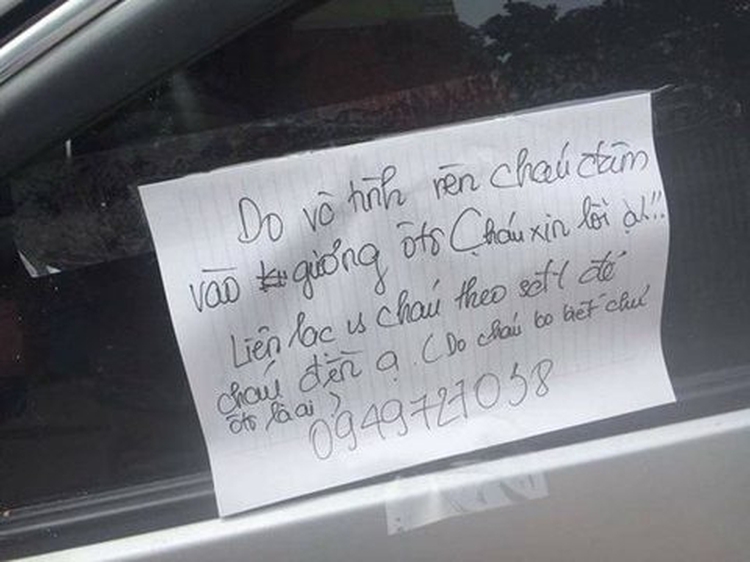 Do vô tình nên cháu đâm
vào gương ôtô Cháu xin lỗi ạ!!
Liên lạc vs cháu theo sđt để
cháu đền ạ. (Do cháu ko biết chủ
ôtô là ai)
0949727058